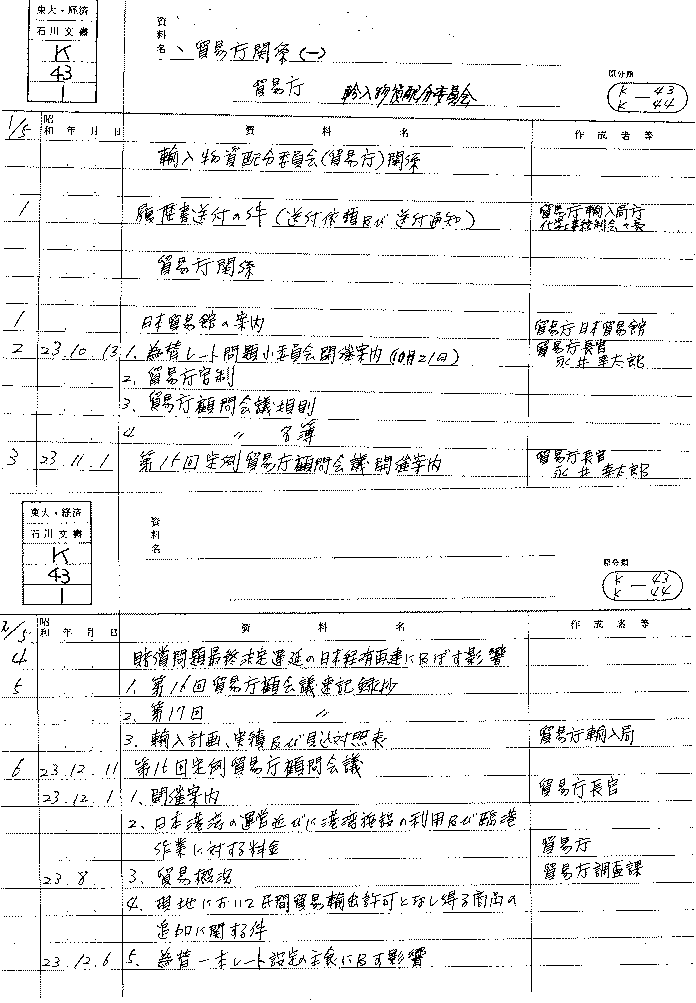 東大・経済
石川文書
K
43
1
資料名 、貿易庁関係(一)
貿易庁 輸入物資配分委員会
原分類
K — 43
K — 44
1/5 昭和 年 月 日 資 料 名 作 成 者 等
輸入物資配分委員会(貿易庁)関係
1 履歴書送付の件(送付依頼及び送付通知) 貿易庁輸入局庁
貿易庁関係
1 日本貿易館の案内 貿易庁日本貿易館
2 23.10.13 1. 為替レート問題小委員会開催案内(10月21日) 貿易庁長官
永井幸太郎
2. 貿易庁官制
3. 貿易庁顧問会議規則
4 〃 名簿
3 23.11.1 第15回定例貿易庁顧問会議開催案内 貿易庁長官
永井幸太郎
東大・経済
石川文書
K
43
1
資料名
原分類
K — 43
K — 44
2/5 昭和 年 月 日 資 料 名 作 成 者 等
4 賠償問題最終決定遅延の日本経済再建に及ぼす影響
5 1. 第16回貿易庁顧会議速記録抄
2. 第17回 〃
3. 輸入計画、実績及び見込対照表 貿易庁輸入局
6 23.12.11 第16回定例貿易庁顧問会議
23.12.1 1. 開催案内 貿易庁長官
2. 日本港湾の運営並びに港湾施設の利用及び臨港
作業に対する料金 貿易庁
23.8 3. 貿易概況 貿易庁調査課
4. 現地において民間貿易輸出許可となし得る商品の
追加に関する件
23.12.6 5. 為替一本レート設定の主食に及す影響